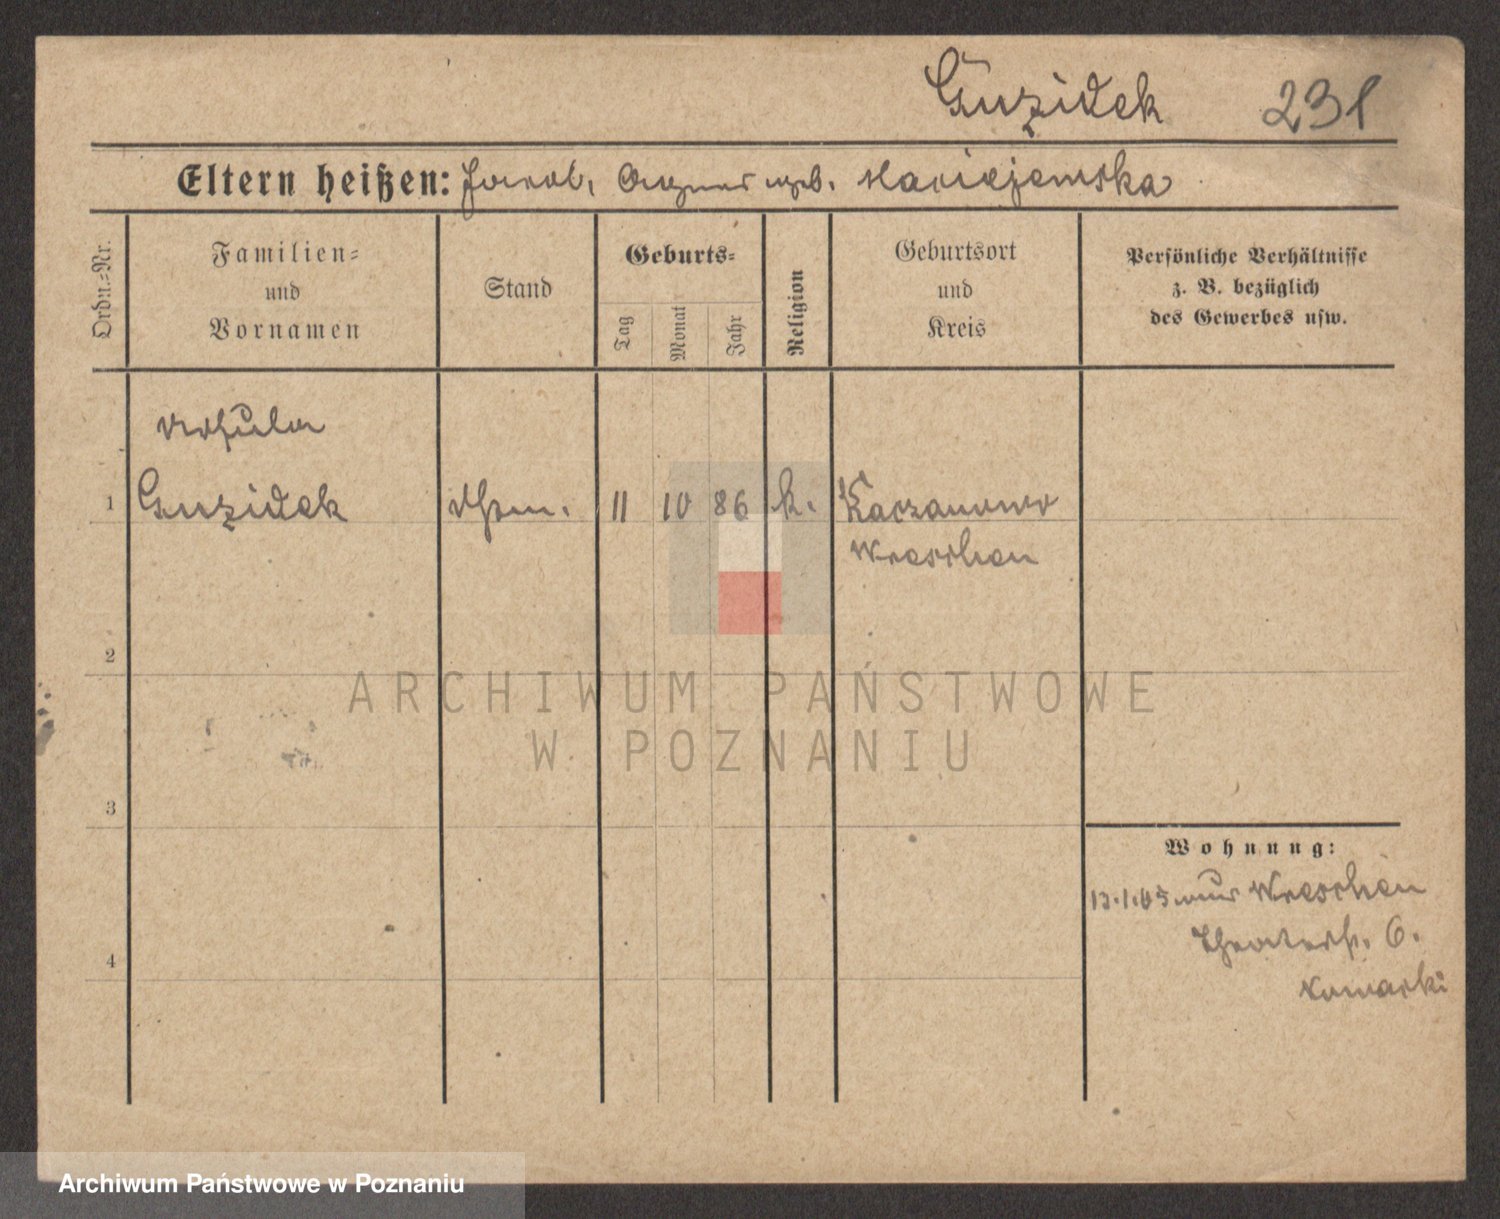 Guzidek 231
Eltern heißen: Jacob, Agnes geb. Maciejewska
Ordn.-Nr.
Familien-
und
Vornamen
Stand
Geburts-
Tag
Monat
Jahr
Religion
Geburtsort
und
Kreis
Persönliche Verhältnisse
z. B. bezüglich
des Gewerbes usw.
Ursula
1 Guzidek 11 10 86 k. Kaczanowo
Wreschen
2
ARCHIWUM PAŃSTWOWE
W POZNANIU
3
Wohnung:
13.1.05 aus Wreschen
Theaterstr. 6.
4
Archiwum Państwowe w Poznaniu